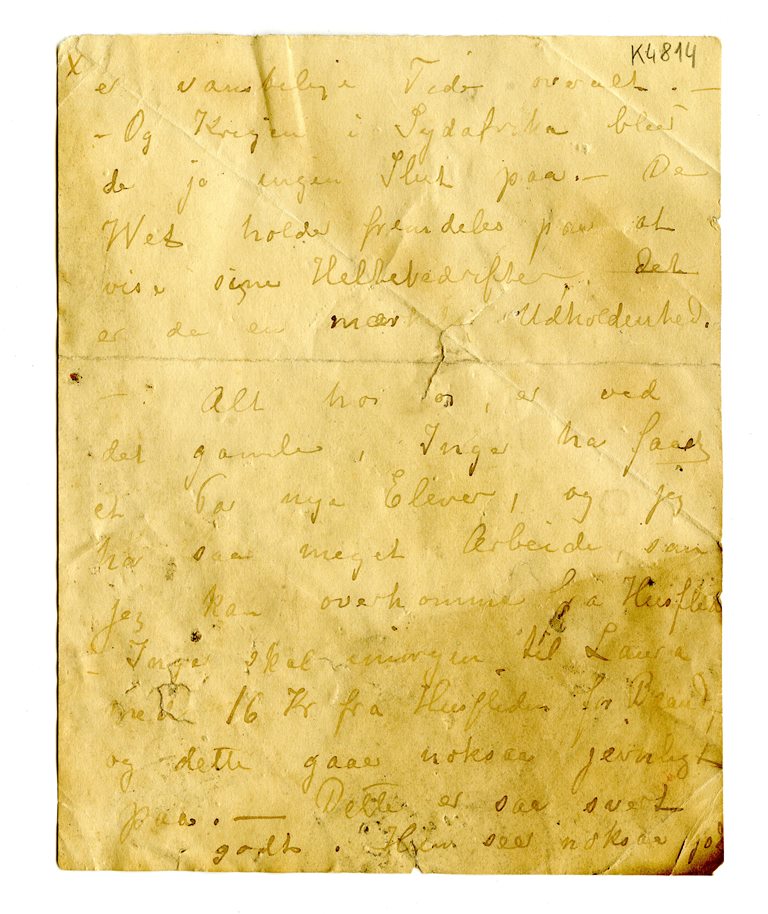 K4814
x
er vanskelige Tider overalt. —
- Og Krigen i Sydafrika bleer
de jo ingen Slut paa. — De
Wet holder fremdeles paa at
vise sine Heltebedrifter det
er da en Udholdenhed.
— Alt hos os, er ved
det gamle, Inga ha faaet
et Par nye Elever, og jeg
ha saa meget Arbeide, som
jeg kan overkomme fra Husflid
- Inga skal imorgen til Laura
med 16 Kr fra Husfliden for
og dette gaaer noksaa jevnligt
paa. — Dette er saa svert
godt. Hun seer noksaa